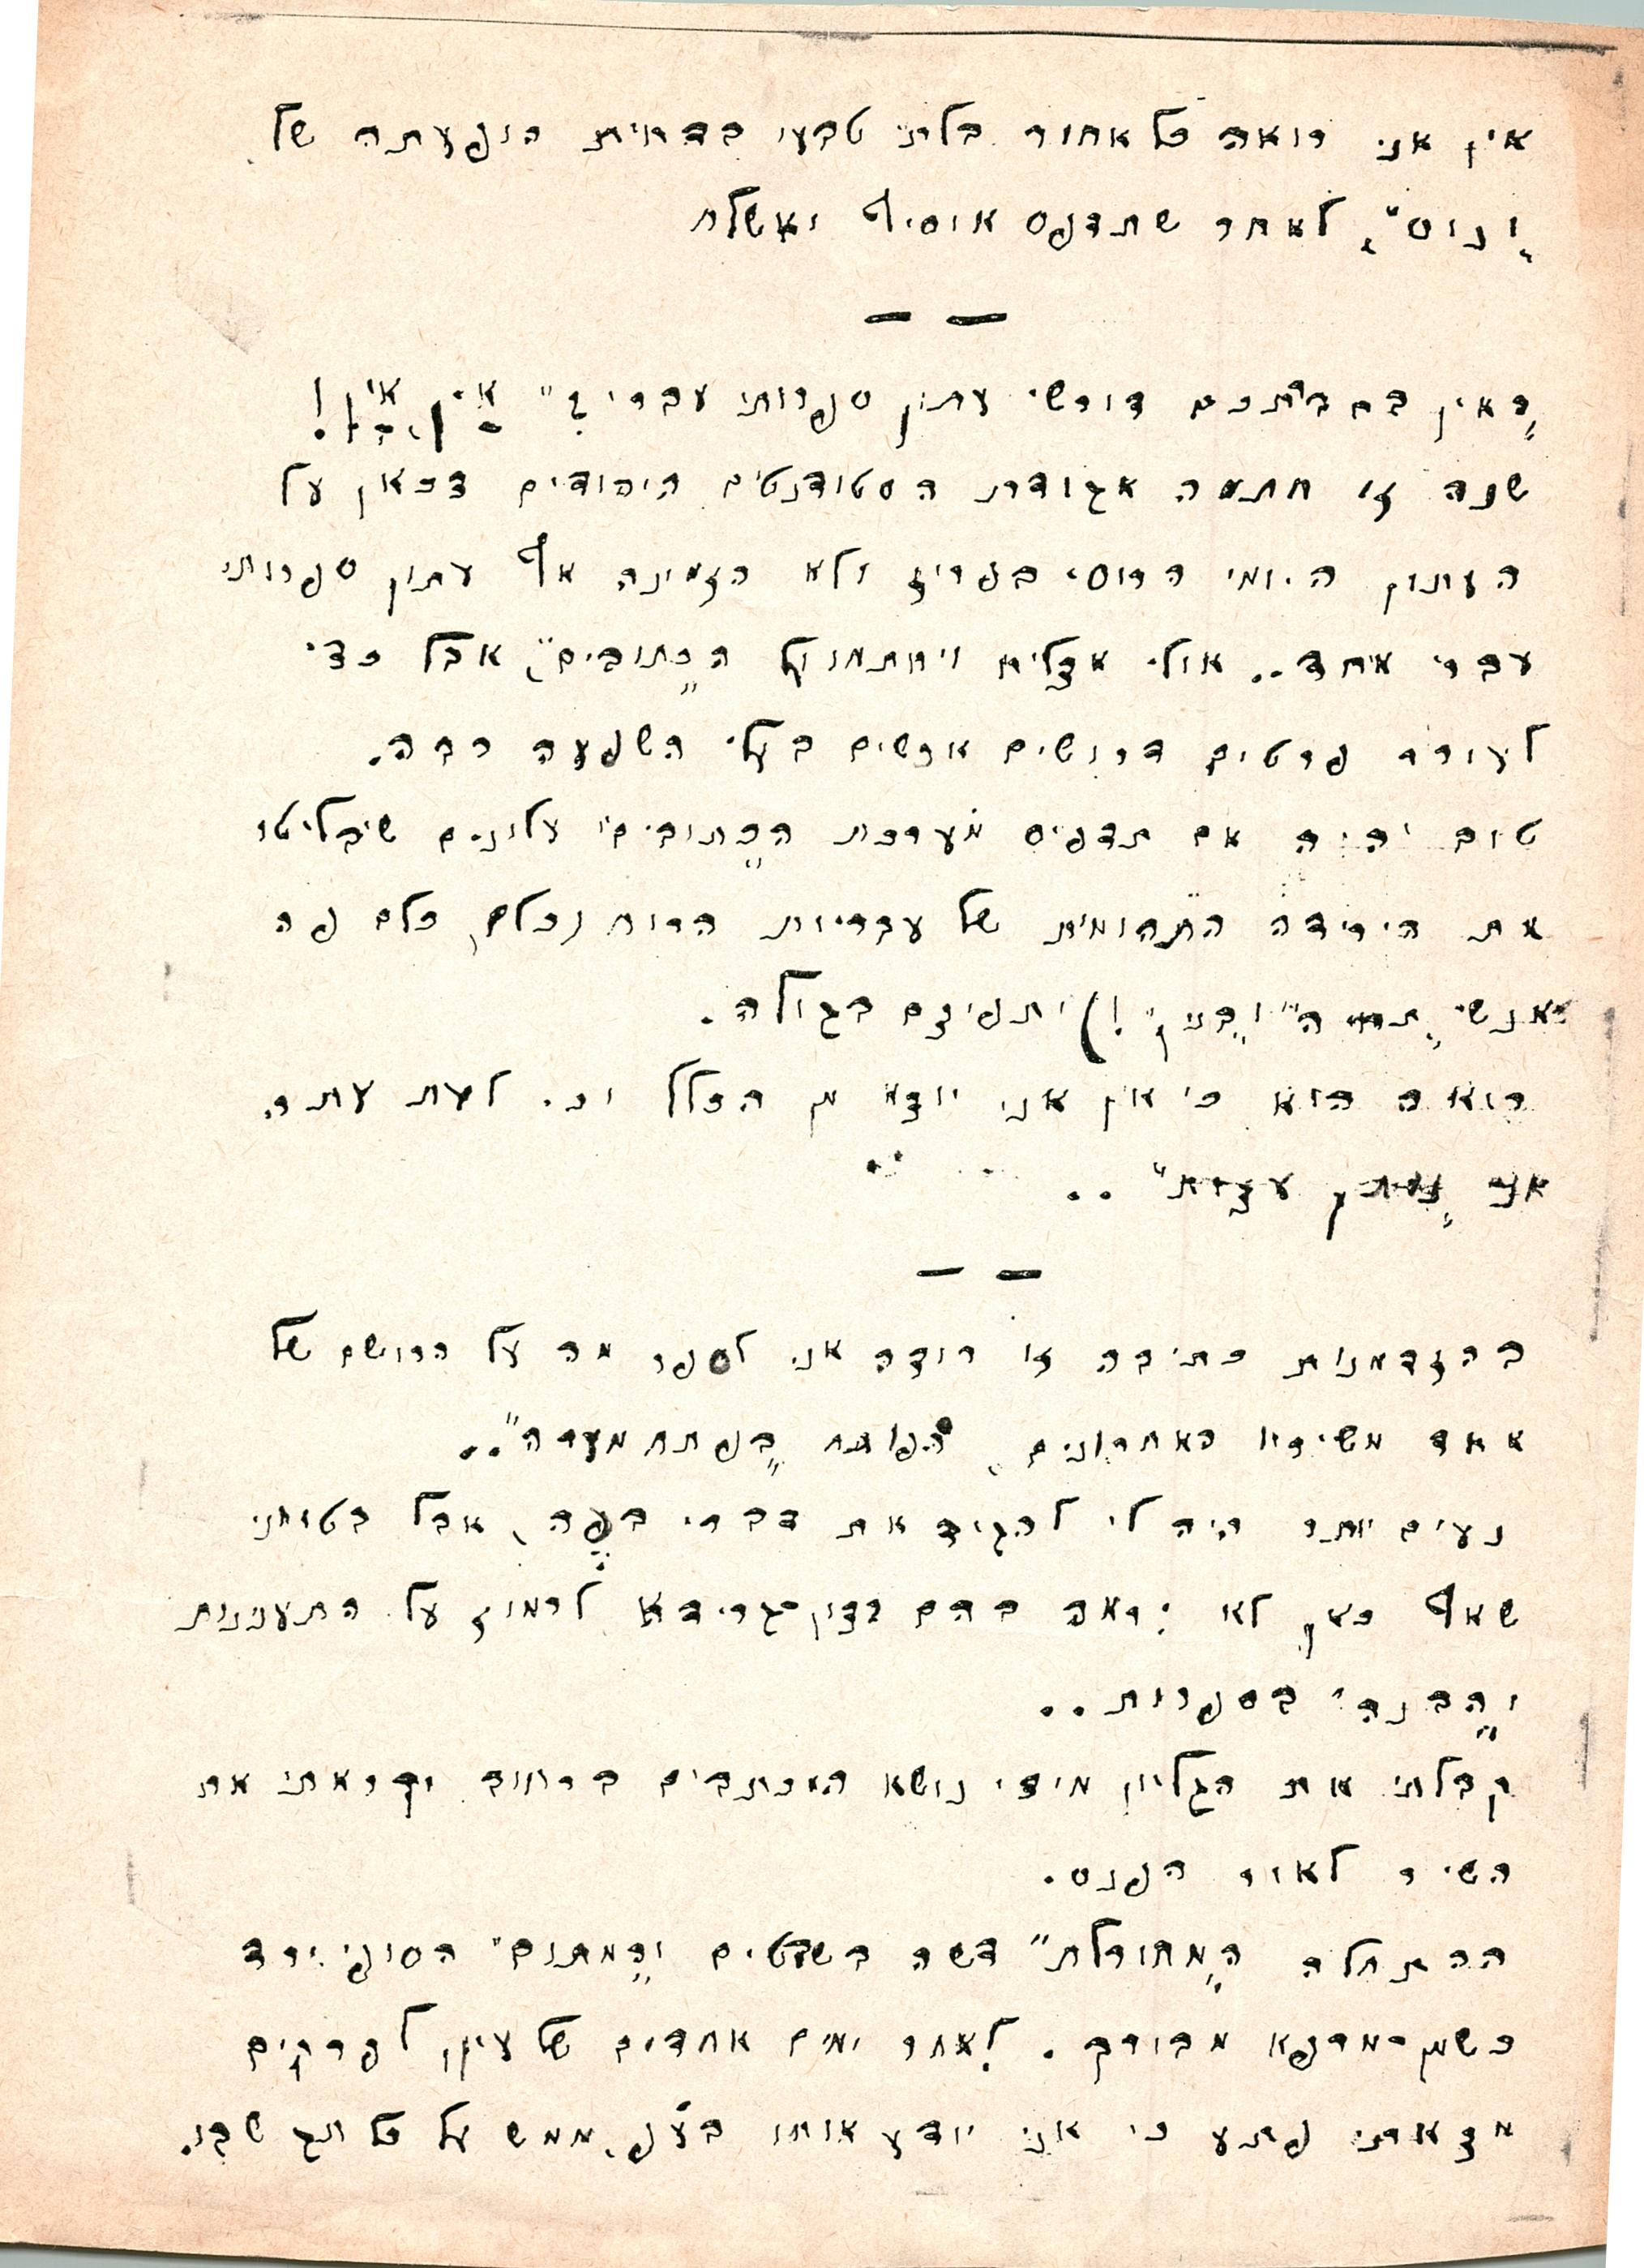 אין אני רואה כל אחור בלתי טבעי בדחית הופעתה של
„ינוס”, לאחר שתדפס אוסיף ואשלח
— —
„האין בסביבתכם דורשי עתון ספרותי עברי?” אין, אין!
שנה זו חתמה אגודת הסטודנטים היהודים דכאן על
העתון היומי הרוסי בפריז ולא הזמינה אף עתון ספרותי
עברי אחד.. אולי אצליח ויחתמו על ה„כתובים”, אבל כדי
לעורר פרטים דרושים אנשים בעלי השפעה רבה.
טוב יהיה אם תדפיס מערכת ה„כתובים” עלונים שיבליטו
את הירידה התהומית של עבריות הרוח (כולם, כולם פה
אנשי „תרי ה” ו„בנין”!) ותפיצם בגולה.
רואה הוא כי אין אני יוצא מן הכלל וכי לעת עתה
אני „נותן עצות”..
— —
בהזדמנות כתיבה זו רוצה אני לספר מה על הרושם של
אחד משיריו האחרונים, הפותח „בפתח מערה”..
נעים יותר היה לי להגיד את דברי בפה, אבל בטוחני
שאף כאן לא יראה בהם רצון־גרידא לרמוז על התענינות
ו„הבנה” בספרות..
קבלתי את הגליון מידי נושא המכתבים ברחוב וקראתי את
השיר לאור הפנס.
ההתחלה ה„מחוללת” דשה בשדטים וה„מתום” הסופי ירד
כשמן־מרפא מבורך. לאחר ימים אחדים של עיון לפרקים
מצאתי פתע כי אני יודע אותו בע״פ, ממש על כל תג שבו.